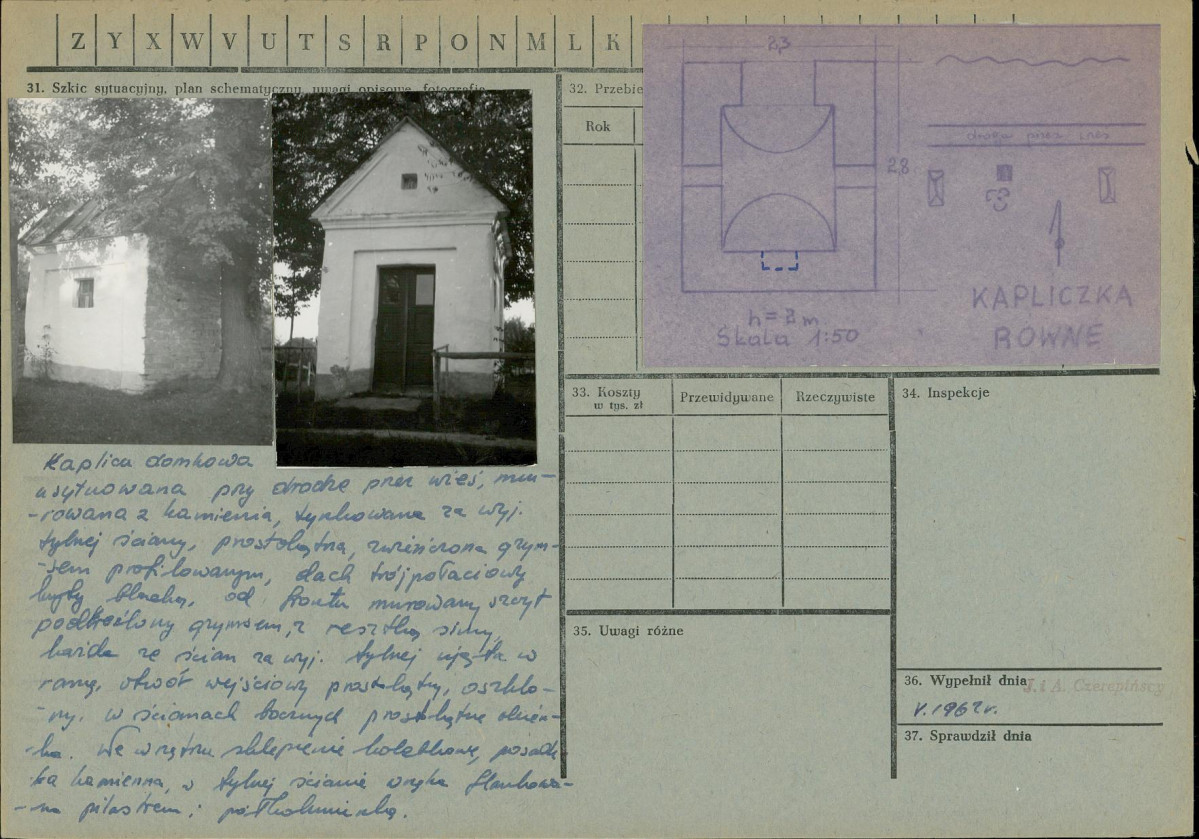 Z Y X W V U T S R P O N M L K
31. Szkic sytuacyjny, plan schematyczny, uwagi opisowe, fotografie
32. Przebie
Rok
2,3
2,8
droga przez wieś
h = 3 m
Skala 1:50
KAPLICZKA
ROWNE
33. Koszty
w tys. zł
Przewidywane
Rzeczywiste
34. Inspekcje
35. Uwagi różne
36. Wypełnił dnia
J. i A. Czerepińscy
V. 1967 r.
37. Sprawdził dnia
Kaplica domkowa
usytuowana przy drodze przez wieś, mu-
-rowana z kamienia, tynkowana za wyj.
tylnej ściany, prostokątna, zwieńczona gzym-
-sem profilowanym, dach trójpołaciowy
kryty blachą, od frontu murowany szczyt
podkreślony gzymsem, z resztką simy,
każda ze ścian za wyj. tylnej ujęta w
ramę, otwór wejściowy prostokątny, oszklo-
-ny. w ścianach bocznych prostokątne okien-
-ka. We wnętrzu sklepienie kolebkowe, posadz-
ka kamienna, w tylnej ścianie wnęka flankowa-
-na pilastrem i półkolumienką.